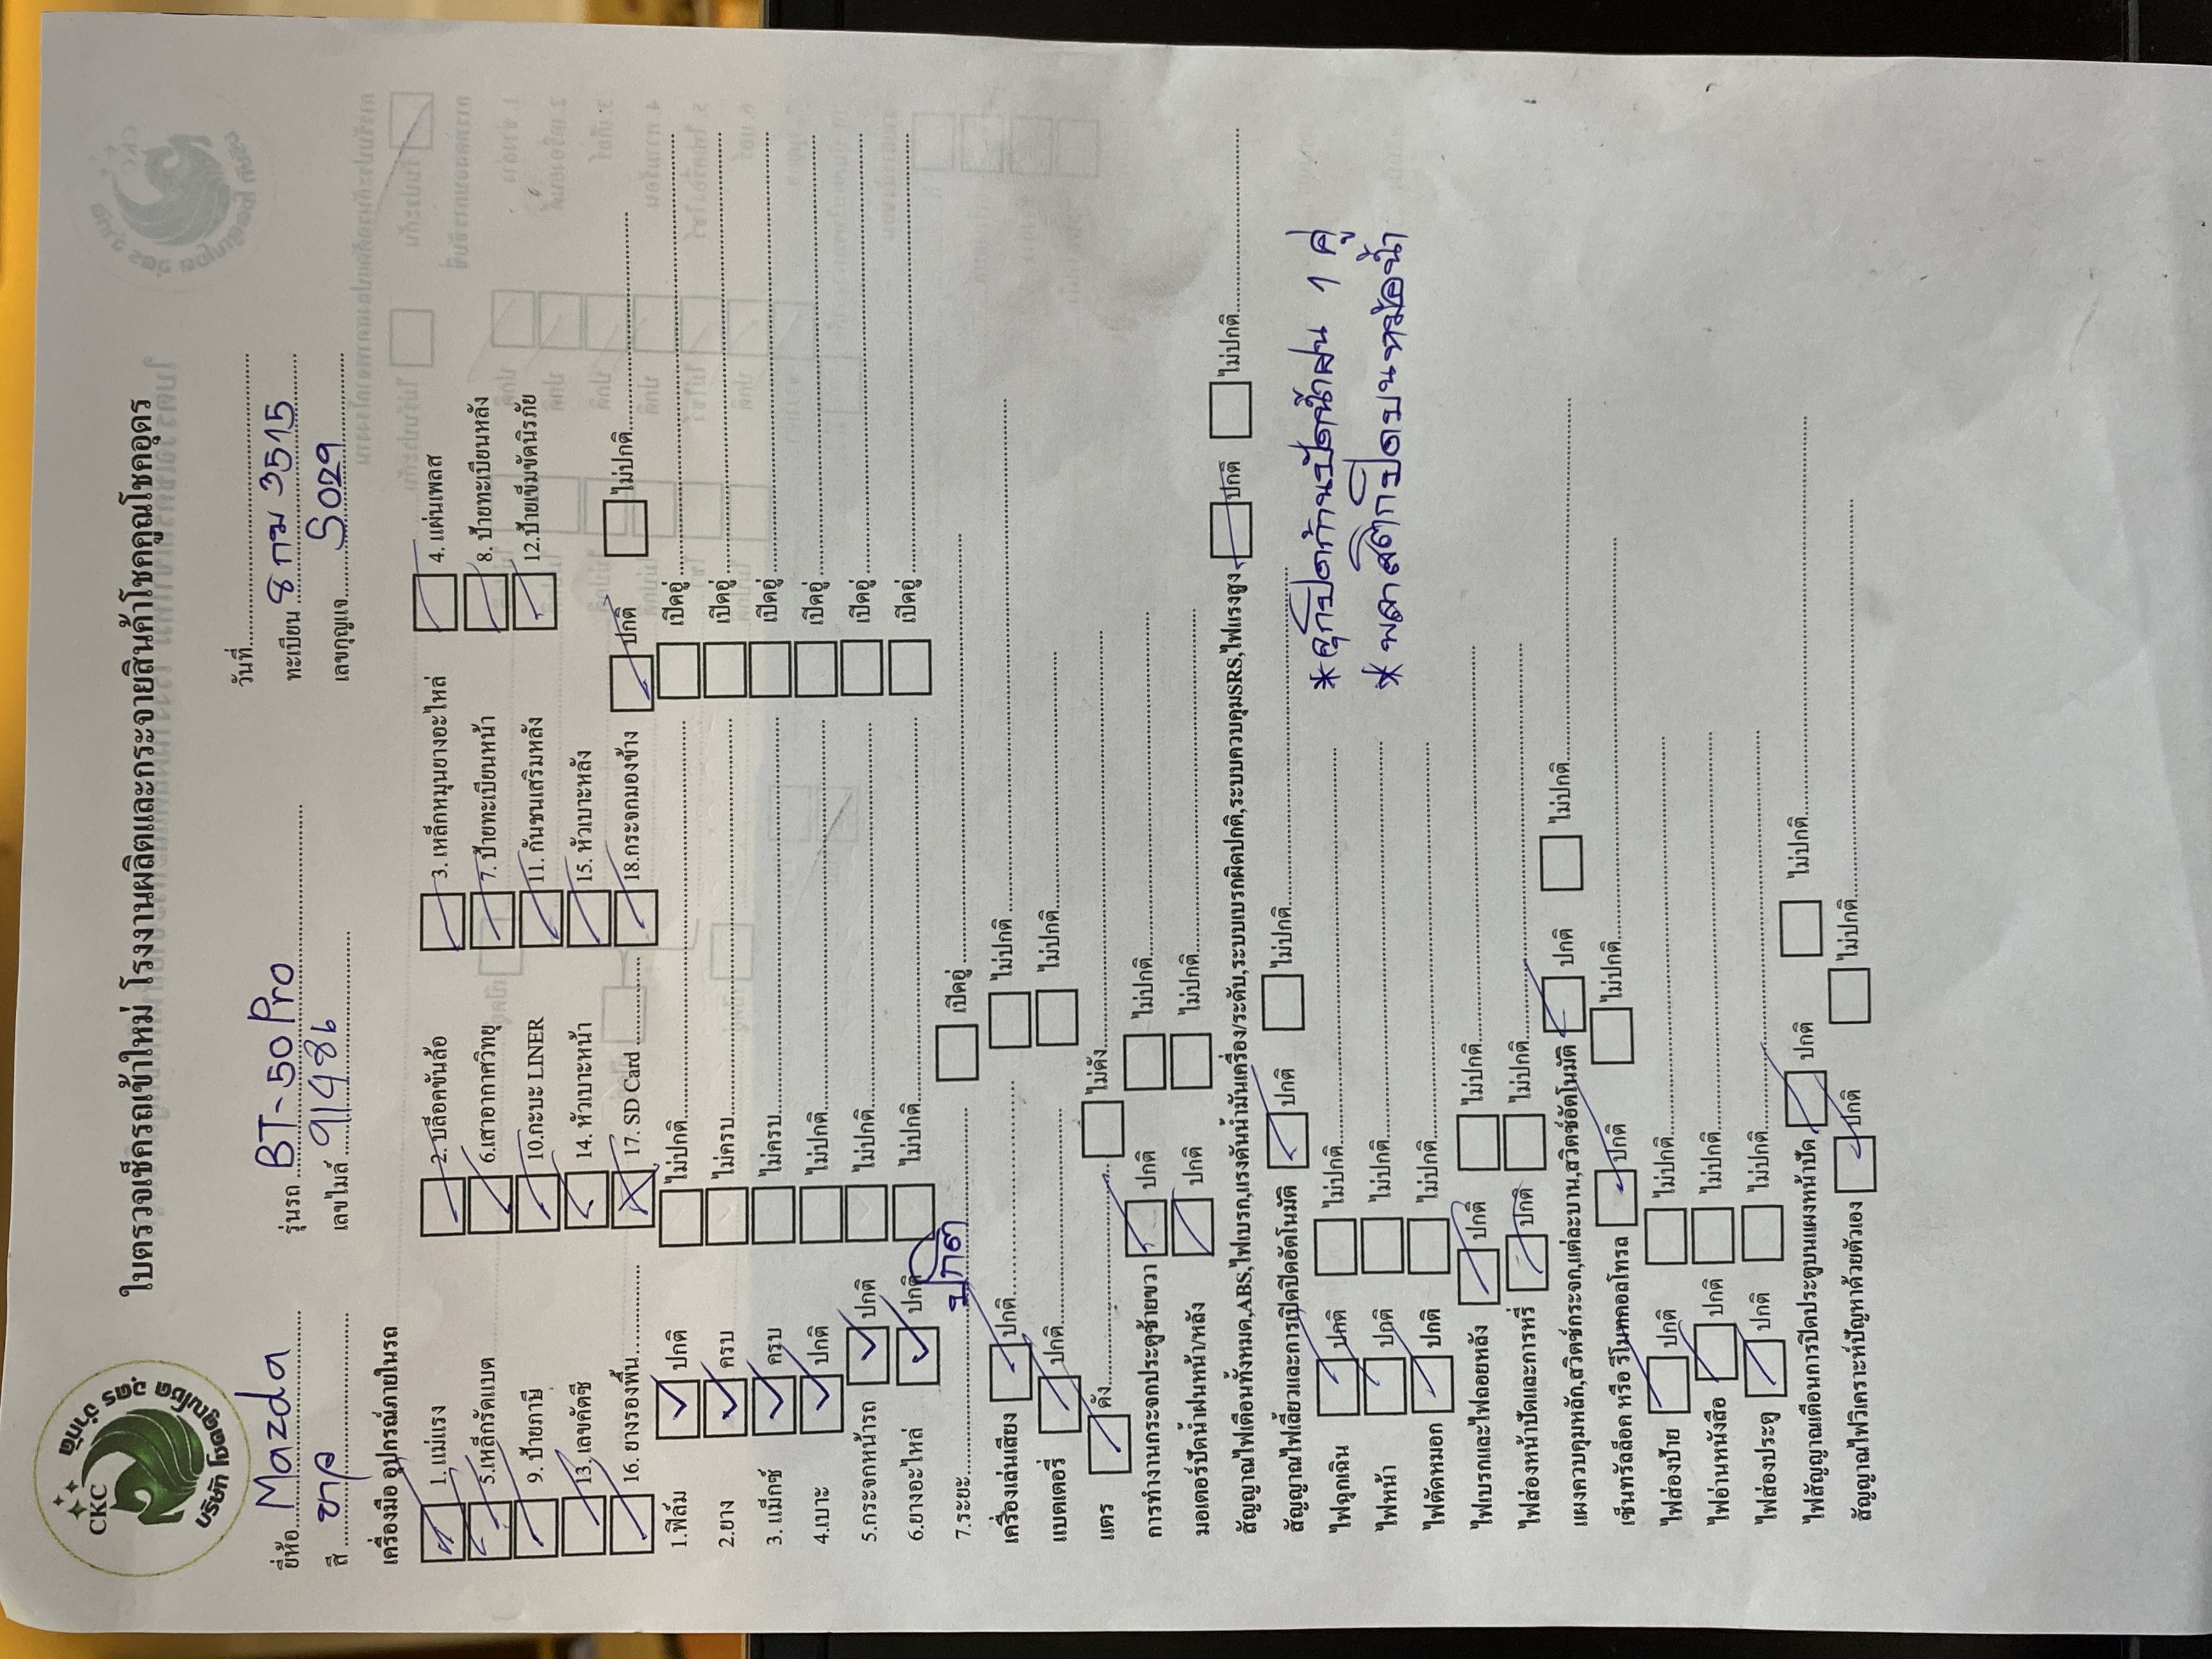 CKC
บริษัท โชคคูณโชค อุดร จำกัด
ใบตรวจเช็ครถเข้าใหม่ โรงงานผลิตและกระจายสินค้าโชคคูณโชคอุดร
วันที่
ยี่ห้อ Mazda รุ่นรถ BT-50 Pro ทะเบียน 8 กม 3515
สี ขาว เลขไมล์ 91486 เลขกุญแจ S029
เครื่องมือ อุปกรณ์ภายในรถ
1. แม่แรง 2. บล็อคขันล้อ 3. เหล็กหมุนยางอะไหล่ 4. แผ่นเพลส
5.เหล็กรัดแบต 6.เสาอากาศวิทยุ 7. ป้ายทะเบียนหน้า 8. ป้ายทะเบียนหลัง
9. ป้ายภาษี 10.กะบะ LINER 11. กันชนเสริมหลัง 12.ป้ายเข็มขัดนิรภัย
13.เลขคัดซี 14. หัวเบาะหน้า 15. หัวเบาะหลัง
16. ยางรองพื้น 17. SD Card 18.กระจกมองข้าง ปกติ ไม่ปกติ
1.ฟิล์ม ปกติ ไม่ปกติ เปิดอู่
2.ยาง ครบ ไม่ครบ เปิดอู่
3. แม็กซ์ ครบ ไม่ครบ เปิดอู่
4.เบาะ ปกติ ไม่ปกติ เปิดอู่
5.กระจกหน้ารถ ปกติ ไม่ปกติ เปิดอู่
6.ยางอะไหล่ ปกติ ไม่ปกติ เปิดอู่
7.ระยะ ปกติ เปิดอู่
เครื่องเล่นเสียง ปกติ ไม่ปกติ
แบตเตอรี่ ปกติ ไม่ปกติ
แตร ดัง ไม่ดัง
การทำงานกระจกประตูซ้ายขวา ปกติ ไม่ปกติ
มอเตอร์ปัดน้ำฝนหน้า/หลัง ปกติ ไม่ปกติ
สัญญาณไฟเตือนทั้งหมด,ABS,ไฟเบรก,แรงดันน้ำมันเครื่อง/ระดับ,ระบบเบรกผิดปกติ,ระบบควบคุมSRS,ไฟแรงสูง ปกติ ไม่ปกติ
สัญญาณไฟเลี้ยวและการเปิดปิดอัตโนมัติ ปกติ ไม่ปกติ
ไฟฉุกเฉิน ปกติ ไม่ปกติ
* จุกปิดก้านปัดน้ำฝน 1 คู่
ไฟหน้า ปกติ ไม่ปกติ
* พลาสติกปิดบนหม้อน้ำ
ไฟตัดหมอก ปกติ ไม่ปกติ
ไฟเบรกและไฟถอยหลัง ปกติ ไม่ปกติ
ไฟส่องหน้าปัดและการหรี่ ปกติ ไม่ปกติ
แผงควบคุมหลัก,สวิตช์กระจก,แต่ละบาน,สวิตช์อัตโนมัติ ปกติ ไม่ปกติ
เซ็นทรัลล็อค หรือ รีโมทคอลโทรล ปกติ ไม่ปกติ
ไฟส่องป้าย ปกติ ไม่ปกติ
ไฟอ่านหนังสือ ปกติ ไม่ปกติ
ไฟส่องประตู ปกติ ไม่ปกติ
ไฟสัญญาณเตือนการปิดประตูบนแผงหน้าปัด ปกติ ไม่ปกติ
สัญญาณไฟวิเคราะห์ปัญหาด้วยตัวเอง ปกติ ไม่ปกติ